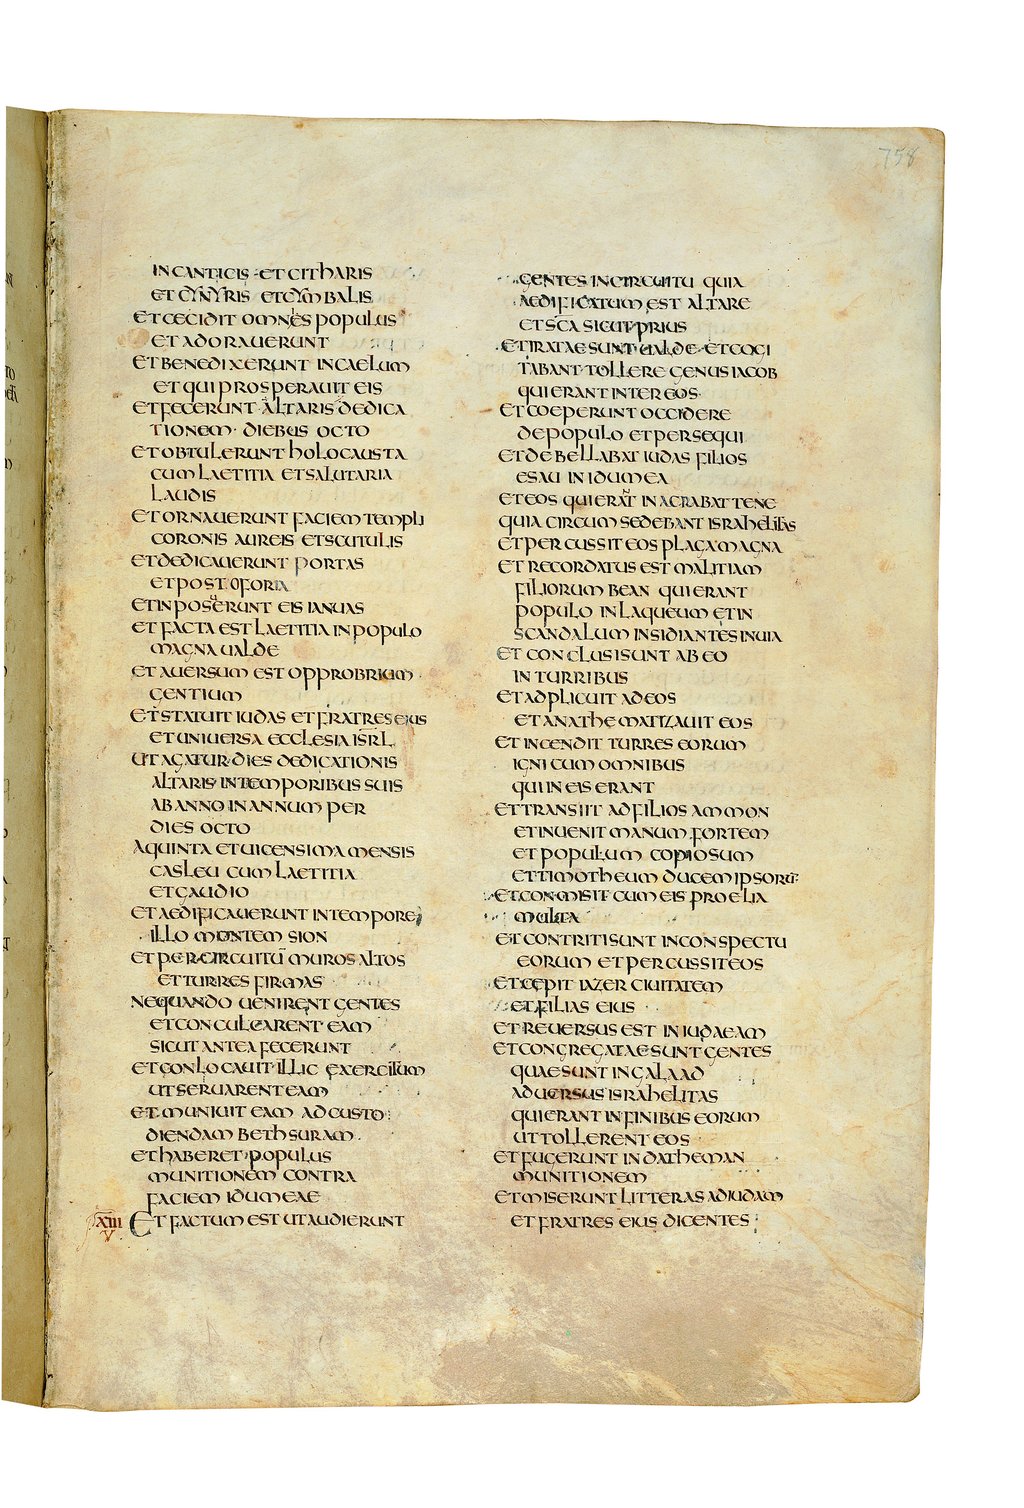 758
IN CANTICIS ET CITHARIS
ET CYNYRIS ET CYMBALIS
ET CECIDIT OMNES POPULUS
ET ADORAUERUNT
ET BENEDIXERUNT IN CAELUM
ET QUI PROSPERAUIT EIS
ET FECERUNT ALTARIS DEDICA
TIONEM DIEBUS OCTO
ET OBTULERUNT HOLOCAUSTA
CUM LAETITIA ET SALUTARIA
LAUDIS
ET ORNAUERUNT FACIEM TEMPLI
CORONIS AUREIS ET SCUTULIS
ET DEDICAUERUNT PORTAS
ET POSTOFORIA
ET INPOSUERUNT EIS IANUAS
ET FACTA EST LAETITIA IN POPULO
MAGNA UALDE
ET AUERSUM EST OPPROBRIUM
GENTIUM
ET STATUIT IUDAS ET FRATRES EIUS
ET UNIUERSA ECCLESIA ISRL
UT AGATUR DIES DEDICATIONIS
ALTARIS IN TEMPORIBUS SUIS
AB ANNO IN ANNUM PER
DIES OCTO
A QUINTA ET UICENSIMA MENSIS
CASLEU CUM LAETITIA
ET GAUDIO
ET AEDIFICAUERUNT IN TEMPORE
ILLO MONTEM SION
ET PER CIRCUITŪ MUROS ALTOS
ET TURRES FIRMAS
NEQUANDO UENIRENT GENTES
ET CONCULCARENT EAM
SICUT ANTEA FECERUNT
ET CONLOCAUIT ILLIC EXERCITUM
UT SERUARENT EAM
ET MUNIUIT EAM AD CUSTO
DIENDAM BETHSURAM
ET HABERET POPULUS
MUNITIONEM CONTRA
FACIEM IDUMEAE
XIII
V
ET FACTUM EST UT AUDIERUNT
GENTES IN CIRCUITU QUIA
AEDIFICATUM EST ALTARE
ET SCA SICUT PRIUS
ET IRATAE SUNT UALDE ET COGI
TABANT TOLLERE GENUS IACOB
QUI ERANT INTER EOS
ET COEPERUNT OCCIDERE
DE POPULO ET PERSEQUI
ET DEBELLABAT IUDAS FILIOS
ESAU IN IDUMEA
ET EOS QUI ERANT IN ACRABATTENE
QUIA CIRCUMSEDEBANT ISRAHELITAS
ET PERCUSSIT EOS PLAGA MAGNA
ET RECORDATUS EST MALITIAM
FILIORUM BEAN QUI ERANT
POPULO IN LAQUEUM ET IN
SCANDALUM INSIDIANTES IN UIA
ET CONCLUSI SUNT AB EO
IN TURRIBUS
ET ADPLICUIT AD EOS
ET ANATHEMATIZAUIT EOS
ET INCENDIT TURRES EORUM
IGNI CUM OMNIBUS
QUI IN EIS ERANT
ET TRANSIIT AD FILIOS AMMON
ET INUENIT MANUM FORTEM
ET POPULUM COPIOSUM
ET TIMOTHEUM DUCEM IPSORŪ
ET CONMISIT CUM EIS PROELIA
MULTA
ET CONTRITI SUNT IN CONSPECTU
EORUM ET PERCUSSIT EOS
ET CEPIT IAZER CIUITATEM
ET FILIAS EIUS
ET REUERSUS EST IN IUDAEAM
ET CONGREGATAE SUNT GENTES
QUAE SUNT IN GALAAD
ADUERSUS ISRAHELITAS
QUI ERANT IN FINIBUS EORUM
UT TOLLERENT EOS
ET FUGERUNT IN DATHEMAN
MUNITIONEM
ET MISERUNT LITTERAS AD IUDAM
ET FRATRES EIUS DICENTES